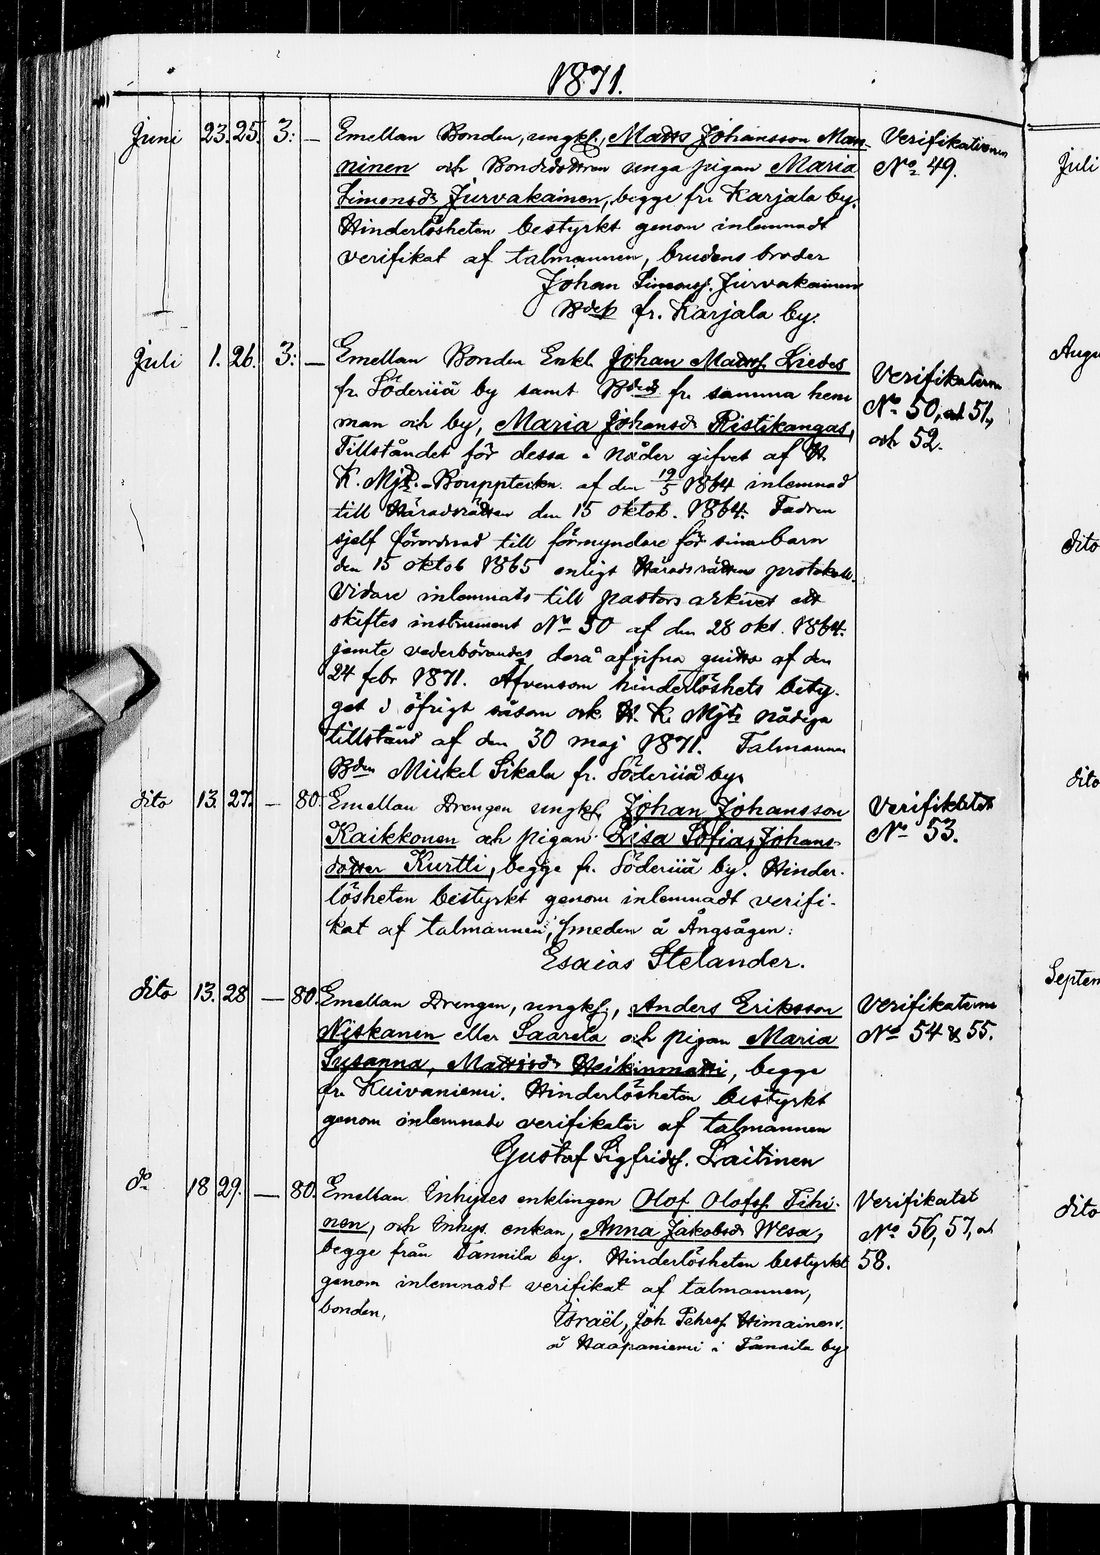 1871.
Juni 23. 25. 3: — Emellan Bonden, ungkl., Matts Johansson Man- Verifikationen
ninen och Bondedottren unga pigan Maria No 49.
Simonsdr Jurvakainen, begge fr. Karjala by.
Hinderlösheten bestyrkt genom inlemnadt
verifikat af talmannen, brudens broder
Johan Simonss. Jurvakainen
Bden fr. Karjala by.
Juli 1. 26. 3: — Emellan Bonden Enkl. Johan Mattss. Liedes Verifikaterna
fr. Söderiiå by samt Bdes fr. samma hem No 50, 51,
man och by, Maria Johansdr Ristikangas, och 52.
Tillståndet för dessa i nåder gifvet af H.
K. Mjt. Bouppteckn. af den 19/5 1864 inlemnad
till Häradsrätten den 15 oktob. 1864. Fadren
sjelf förordnad till förmyndare för sina barn
den 15 oktob 1865 enligt Häradsrättens protokoll.
Vidare inlemnats till pastors arkivet ett
skiftes instrument No 50 af den 28 okt. 1864.
jemte vederbörandes derå afgifna quitto af den
24 febr 1871. Äfvensom hinderlöshets bety-
get i öfrigt såsom ock H. K. Mjts nådiga
tillstånd af den 30 maj 1871. Talmannen
Bden Mickel Sikala fr. Söderiiå by.
dito 13. 27. — 80. Emellan Drengen ungkl. Johan Johansson Verifikatet
Kaikkonen och pigan Lisa Sofia, Johans- No 53.
dotter Kurtti, begge fr. Söderiiå by. Hinder-
lösheten bestyrkt genom inlemnadt verifi-
kat af talmannen, smeden å Ångsågen:
Esaias Stelander.
dito 13. 28 — 80. Emellan Drengen, ungkl., Anders Eriksson Verifikaterna
Niskanen eller Saarela och pigan Maria No 54 & 55.
Susanna, Mattsdr Heikinmatti, begge
fr. Kuivaniemi. Hinderlösheten bestyrkt
genom inlemnade verifikater af talmannen
Gustaf Sigfridss. Laitinen
do 18 29. — 80. Emellan Inhyses enklingen Olof Olofss. Tihi- Verifikatet
nen, och Inhys. enkan, Anna Jakobsdr Wesa, No 56, 57, och
begge från Tannila by. Hinderlösheten bestyrkt 58.
genom inlemnadt verifikat af talmannen,
bonden, Israël, Joh. Pehrss. Himainen
å Haapaniemi i Tannila by
Juli
Augu
dito
dito
Septem
dito